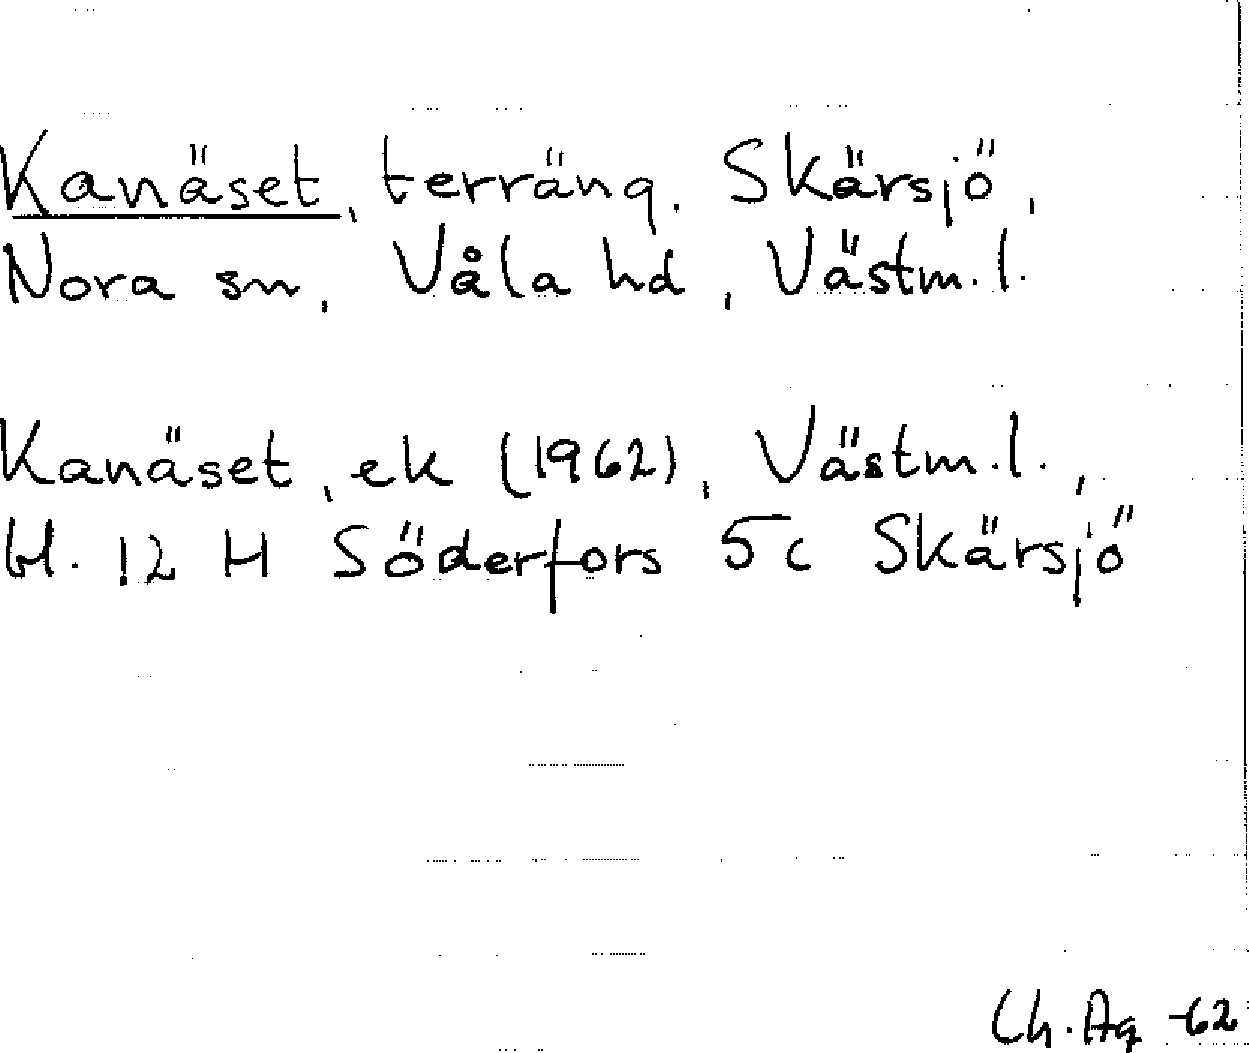 Kanäset, terräng. Skärsjö,
Nora sn, Våla hd, Västm.l.
Kanäset, ek (1962), Västm.l.,
bl. 12 H Söderfors 5c Skärsjö
Ch. Ag -62